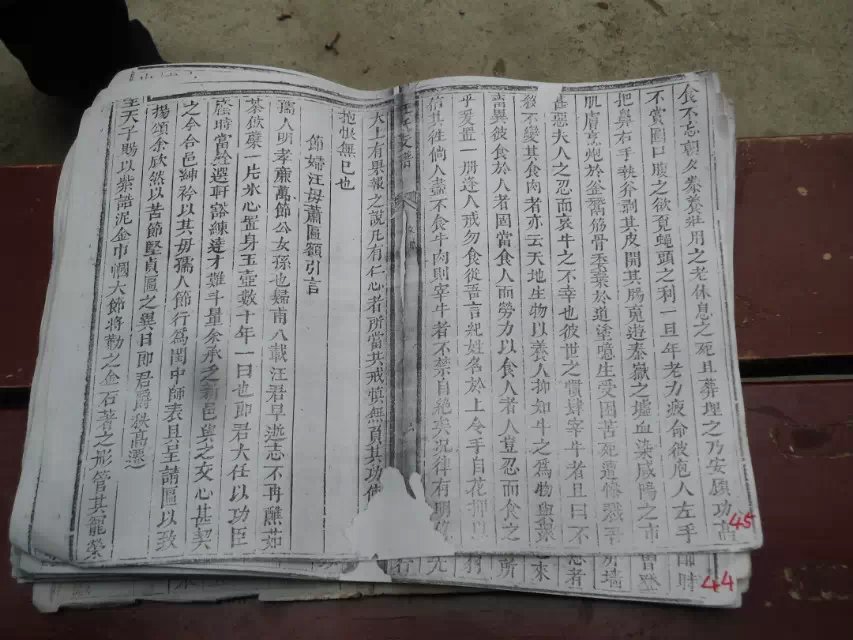 食不忘朝夕豢養壯用之老休息之死且葬埋之乃安厥功
不嘗圖口腹之欲覓蠅頭之利一旦年老力疲命彼庖人左手
把鼻右手執斧剥其皮開其腸寃逾泰嶽之墟血染咸陽之市
肌膚烹炮於釜鬵筋骨委棄於道塗噫生受困苦死遭慘戮
甚惡夫人之忍而哀牛之不幸也彼世之慣肆宰牛者且曰不
殺不變其食肉者亦云天地生物以養人抑如牛之為物與
畜異彼食於人者固當食人而勞力以食人者人豈忍而食之
乎爰置一冊逢人戒勿食從吾言紀姓名於上令手自花押
信其徃倘人盡不食牛肉則宰牛者不禁自絶矣况律有明
大上有果報之說凡有仁心者所當共戒慎無負其功
抱恨無已也
節婦汪母蕭匾額引言
孺人明孝亷萬節公女孫也歸甫八載汪君早逝志不再醮茹
荼飲糵一片氷心置身玉壺數十年一日也即君大任以功臣
蔭時當銓選軒豁練達才難斗量余承之邑與之交心甚契
之今合邑紳衿以其毋孺人節行為閨中師表且呈請匾以致
揚頌余欣然以苦節堅貞匾之異日即君爵秩高遷
王天子賜以紫誥泥金巾幗大節將勒之金石著之彤管其寵榮
45
44